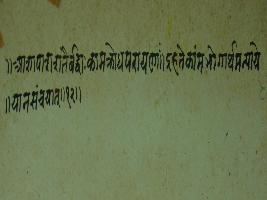 ॥आशापाशशतैर्बद्धाः कामक्रोधपरायणाः॥ईहन्तेकामभोगार्थमन्याये
॥यानसंचयान्॥१२॥